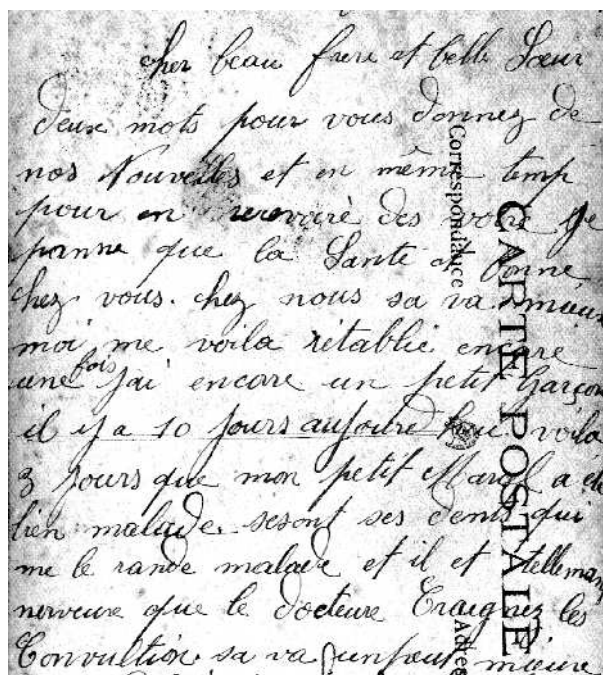 cher beau frere et belle Sœur
deux mots pour vous donnez de
nos Nouvelles et en même temp
pour en recevoire des votre Je
panne que la Sante et bonne
chez vous. chez nous sa va mieux
moi me voila rétablie encore
une fois J'ai encore un petit Garçon
il y a 10 Jours aujourd'hui voila
3 Jours que mon petit a été
bien malade sesont ses dents qui
me le rande malade et il et tellemant
nerveuse que le docteure Craignez les
Convultion sa va un peut mieure
CARTE POSTALE
Correspondance